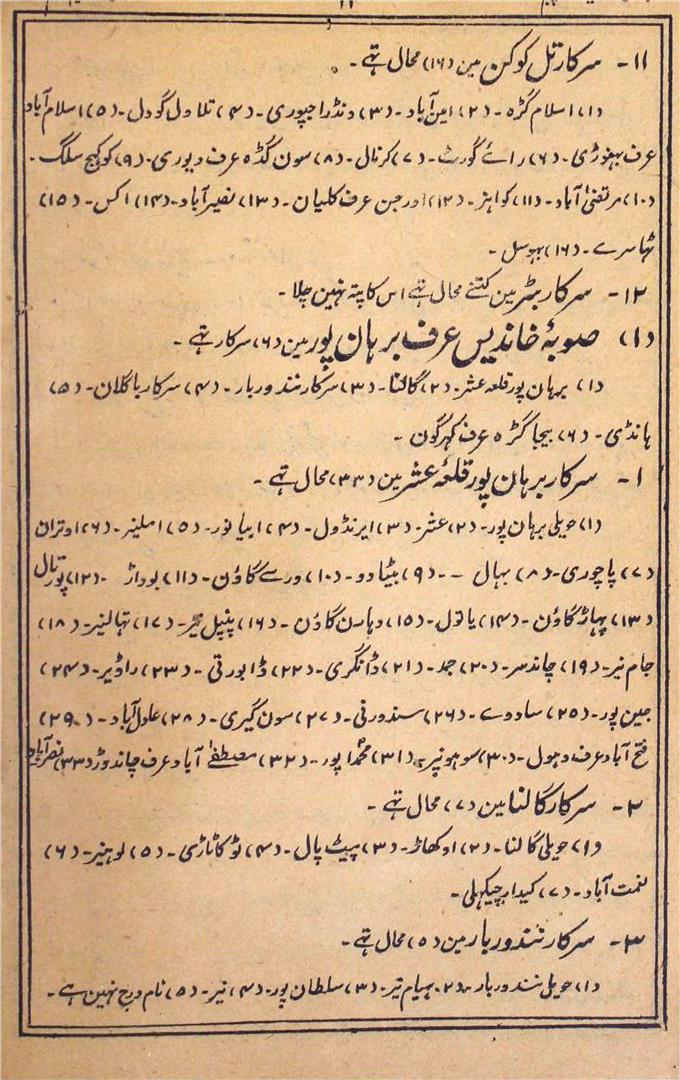 ۱۱- سرکار تل کوکن مین (۱۶) محال تھے۔
(۱) اسلام گڑہ۔ (۲) امین آباد۔ (۳) ونڈراجپوری۔ (۴) تلاول گودل۔ (۵) اسلام آباد
عرف بہنوڑی۔ (۶) رائے گورٹ۔ (۷) کرنال۔ (۸) سون گڈہ عرف دیوری۔ (۹) کوکہیج سلگ۔
(۱۰) مرتضیٰ آباد۔ (۱۱) کواہنر۔ (۱۲) اورجن عرف کلیان۔ (۱۳) نصیر آباد۔ (۱۴) اکس۔ (۱۵)
تہامرے۔ (۱۶) بہوسل۔
۱۲- سرکار بٹر مین کتنے محال تھے اس کا پتہ نہین چلا۔
(۱) صوبۂ خاندیس عرف برہان پور مین (۶) سرکار تھے۔
(۱) برہان پور قلعہ عشر۔ (۲) گالنا۔ (۳) سرکار نندوربار۔ (۴) سرکار باگلان۔ (۵)
ہانڈی۔ (۶) بیجاگڑہ عرف کہرگون۔
۱- سرکار برہان پور قلعۂ عشر مین (۳۳) محال تھے۔
(۱) حویلی برہان پور۔ (۲) عشر۔ (۳) ایرنڈول۔ (۴) ابیا نور۔ (۵) املنیر۔ (۶) اوتران
(۷) پاچوری۔ (۸) بہال۔ (۹) بیٹاودو۔ (۱۰) ورسے گاؤن۔ (۱۱) بوداڑ۔ (۱۲) پورتال
(۱۳) پہاڑ گاؤن۔ (۱۴) یاتول۔ (۱۵) وہارن گاؤن۔ (۱۶) پنپل۔ (۱۷) تہالنیر۔ (۱۸)
جام نیر۔ (۱۹) چاندسر۔ (۲۰) جد۔ (۲۱) ڈانگری۔ (۲۲) ڈابورتی۔ (۲۳) راڈیر۔ (۲۴)
جین پور۔ (۲۵) سادوے۔ (۲۶) سندورنی۔ (۲۷) سون گیری۔ (۲۸) عادل آباد۔ (۲۹)
فتح آباد عرف دہول۔ (۳۰) سوہونیر۔ (۳۱) محمدا پور۔ (۳۲) مصطفےٰ آباد عرف چاندوڑ (۳۳) نصر آباد
۲- سرکار گالنا مین (۷) محال تھے۔
(۱) حویلی گالنا۔ (۲) اوکھاڑ۔ (۳) پیٹ پال۔ (۴) ٹوکاٹاڑی۔ (۵) لوہنیر۔ (۶)
نعمت آباد۔ (۷) کیدار چیکہلی۔
۳- سرکار نندوربار مین (۵) محال تھے۔
(۱) حویلی نندوربار۔ (۲) بہیام تیر۔ (۳) سلطان پور۔ (۴) نیر۔ (۵) نام درج نہین ہے۔